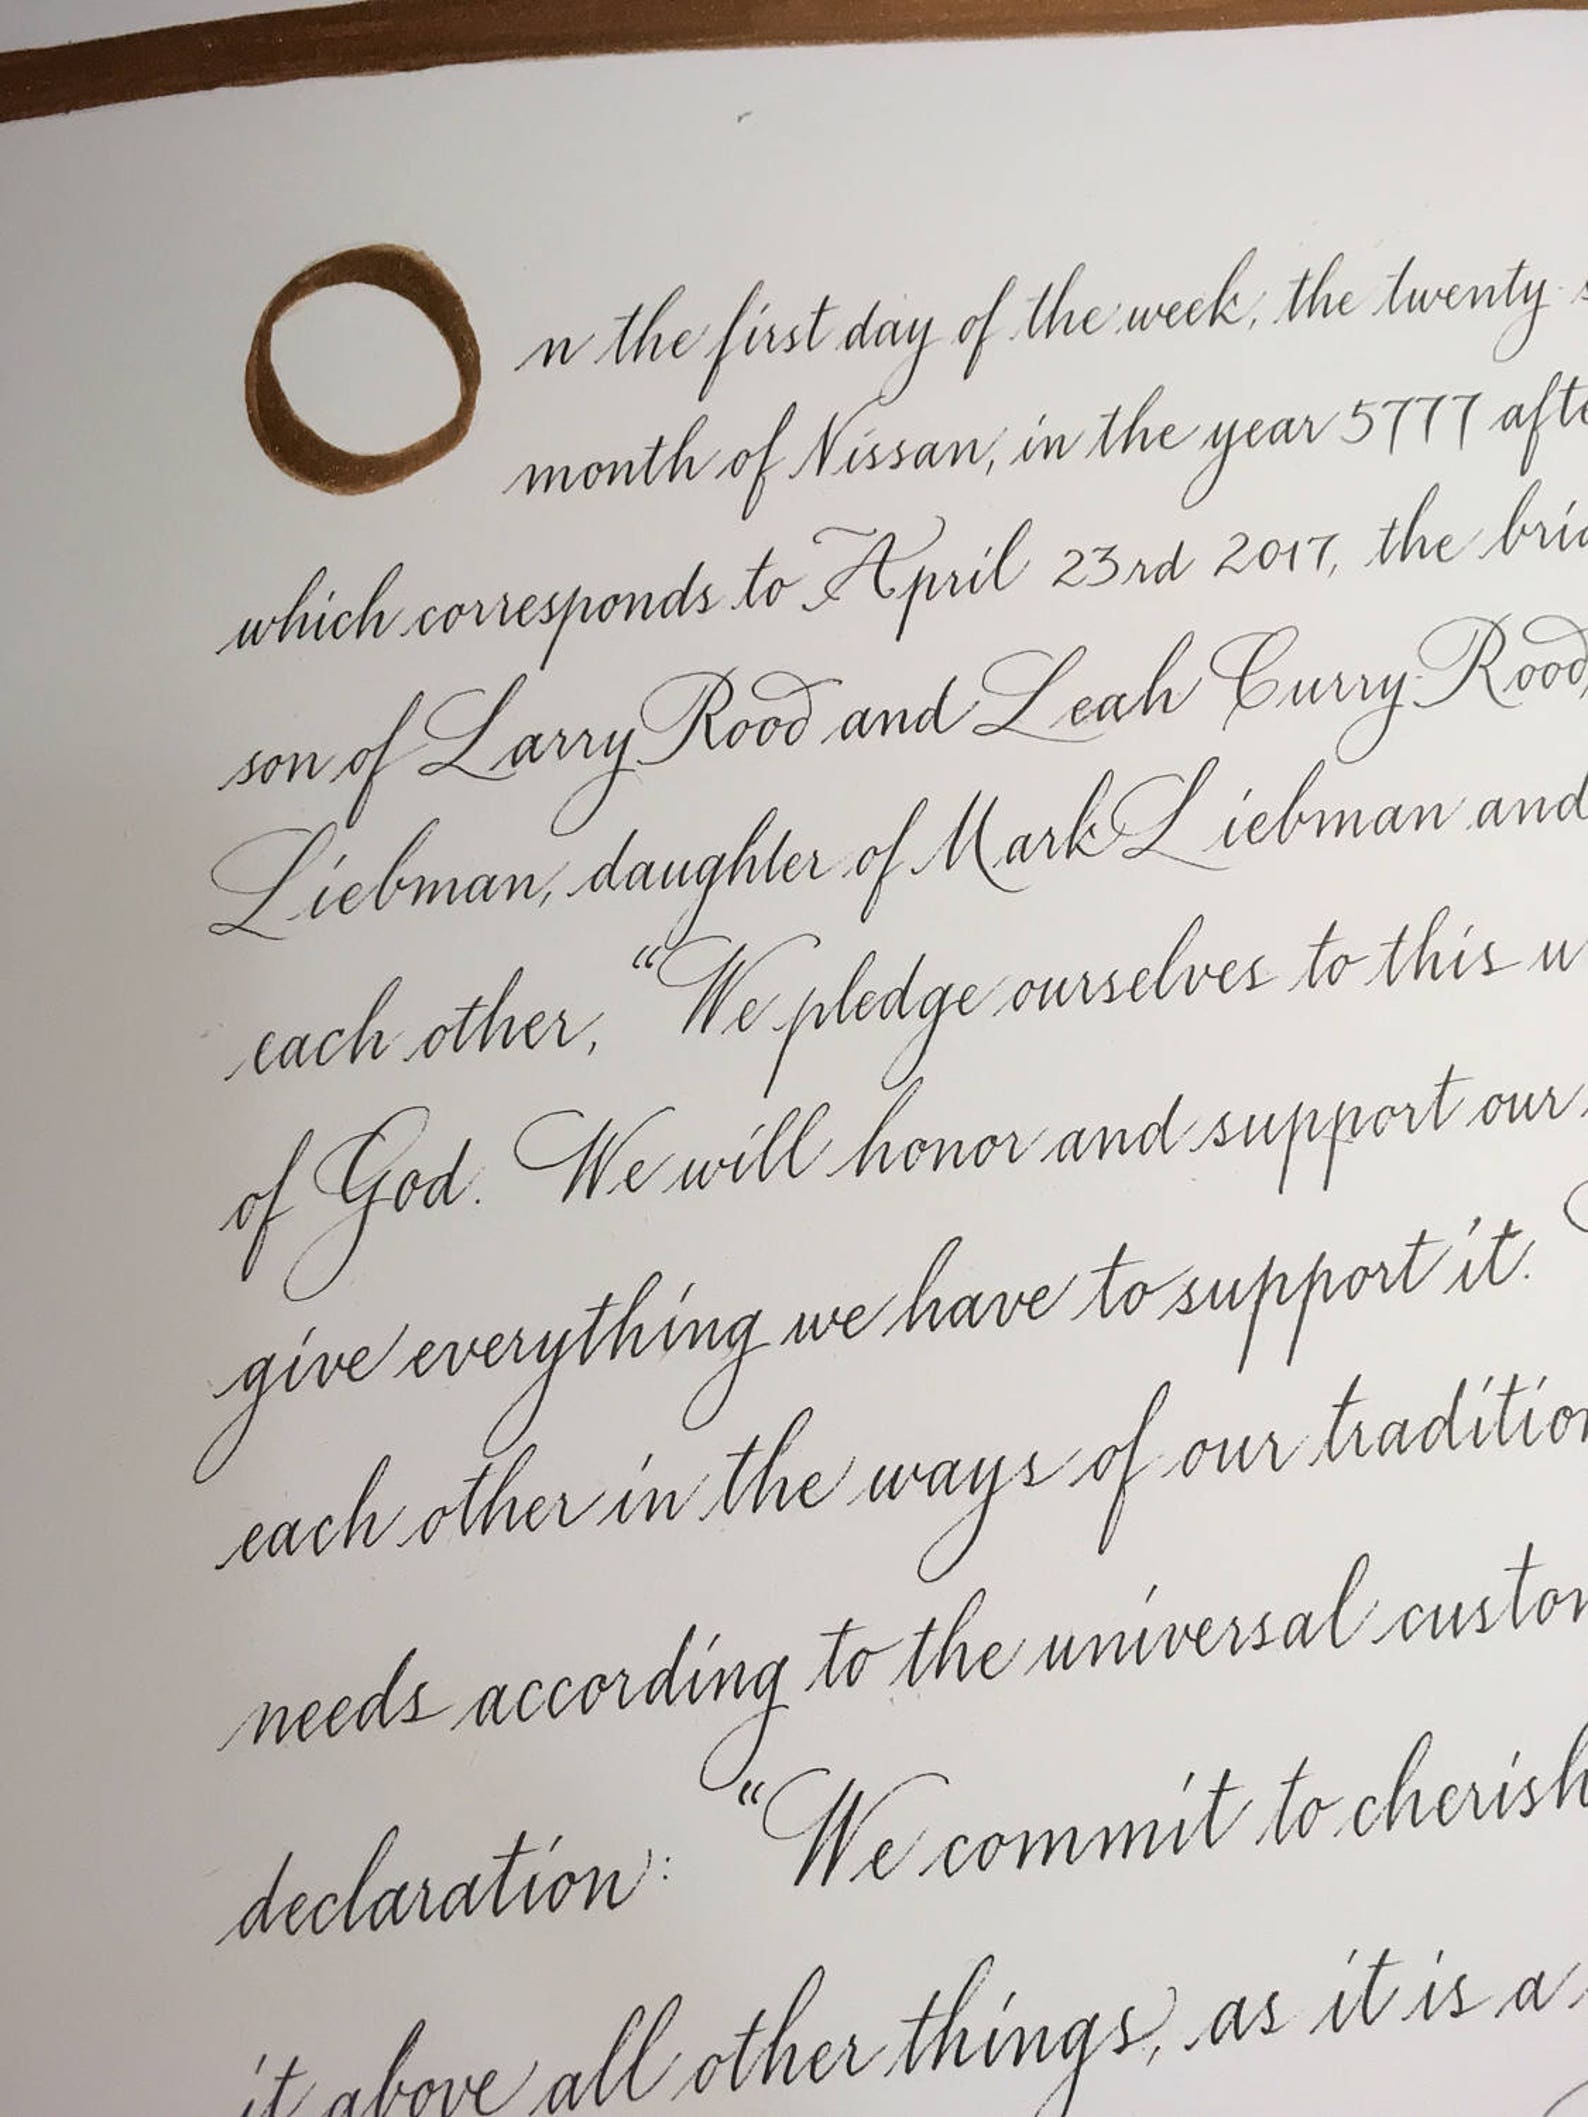 On the first day of the week, the twenty-
month of Nissan, in the year 5777
which corresponds to April 23rd 2017, the
son of Larry Rood and Leah Curry-Rood,
Liebman, daughter of Mark Liebman and
each other, “We pledge ourselves to this
of God. We will honor and support our
give everything we have to support it.
each other in the ways of our
needs according to the universal
declaration: “We commit to cherish
it above all other things, as it is a